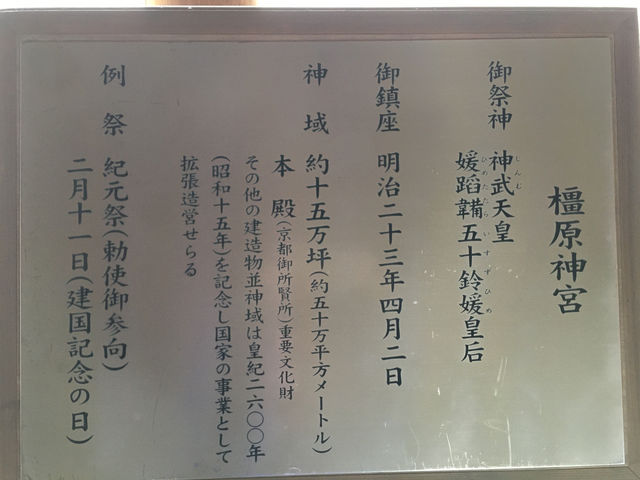 橿原神宮
御祭神 神武天皇
じんむ
媛蹈韛五十鈴媛皇后
ひめたたらいすずひめ
御鎮座 明治二十三年四月二日
神域 約十五万坪(約五十万平方メートル)
本殿(京都御所賢所)重要文化財
その他の建造物並神域は皇紀二六〇〇年
(昭和十五年)を記念し国家の事業として
拡張造営せらる
例祭 紀元祭(勅使御参向)
二月十一日(建国記念の日)